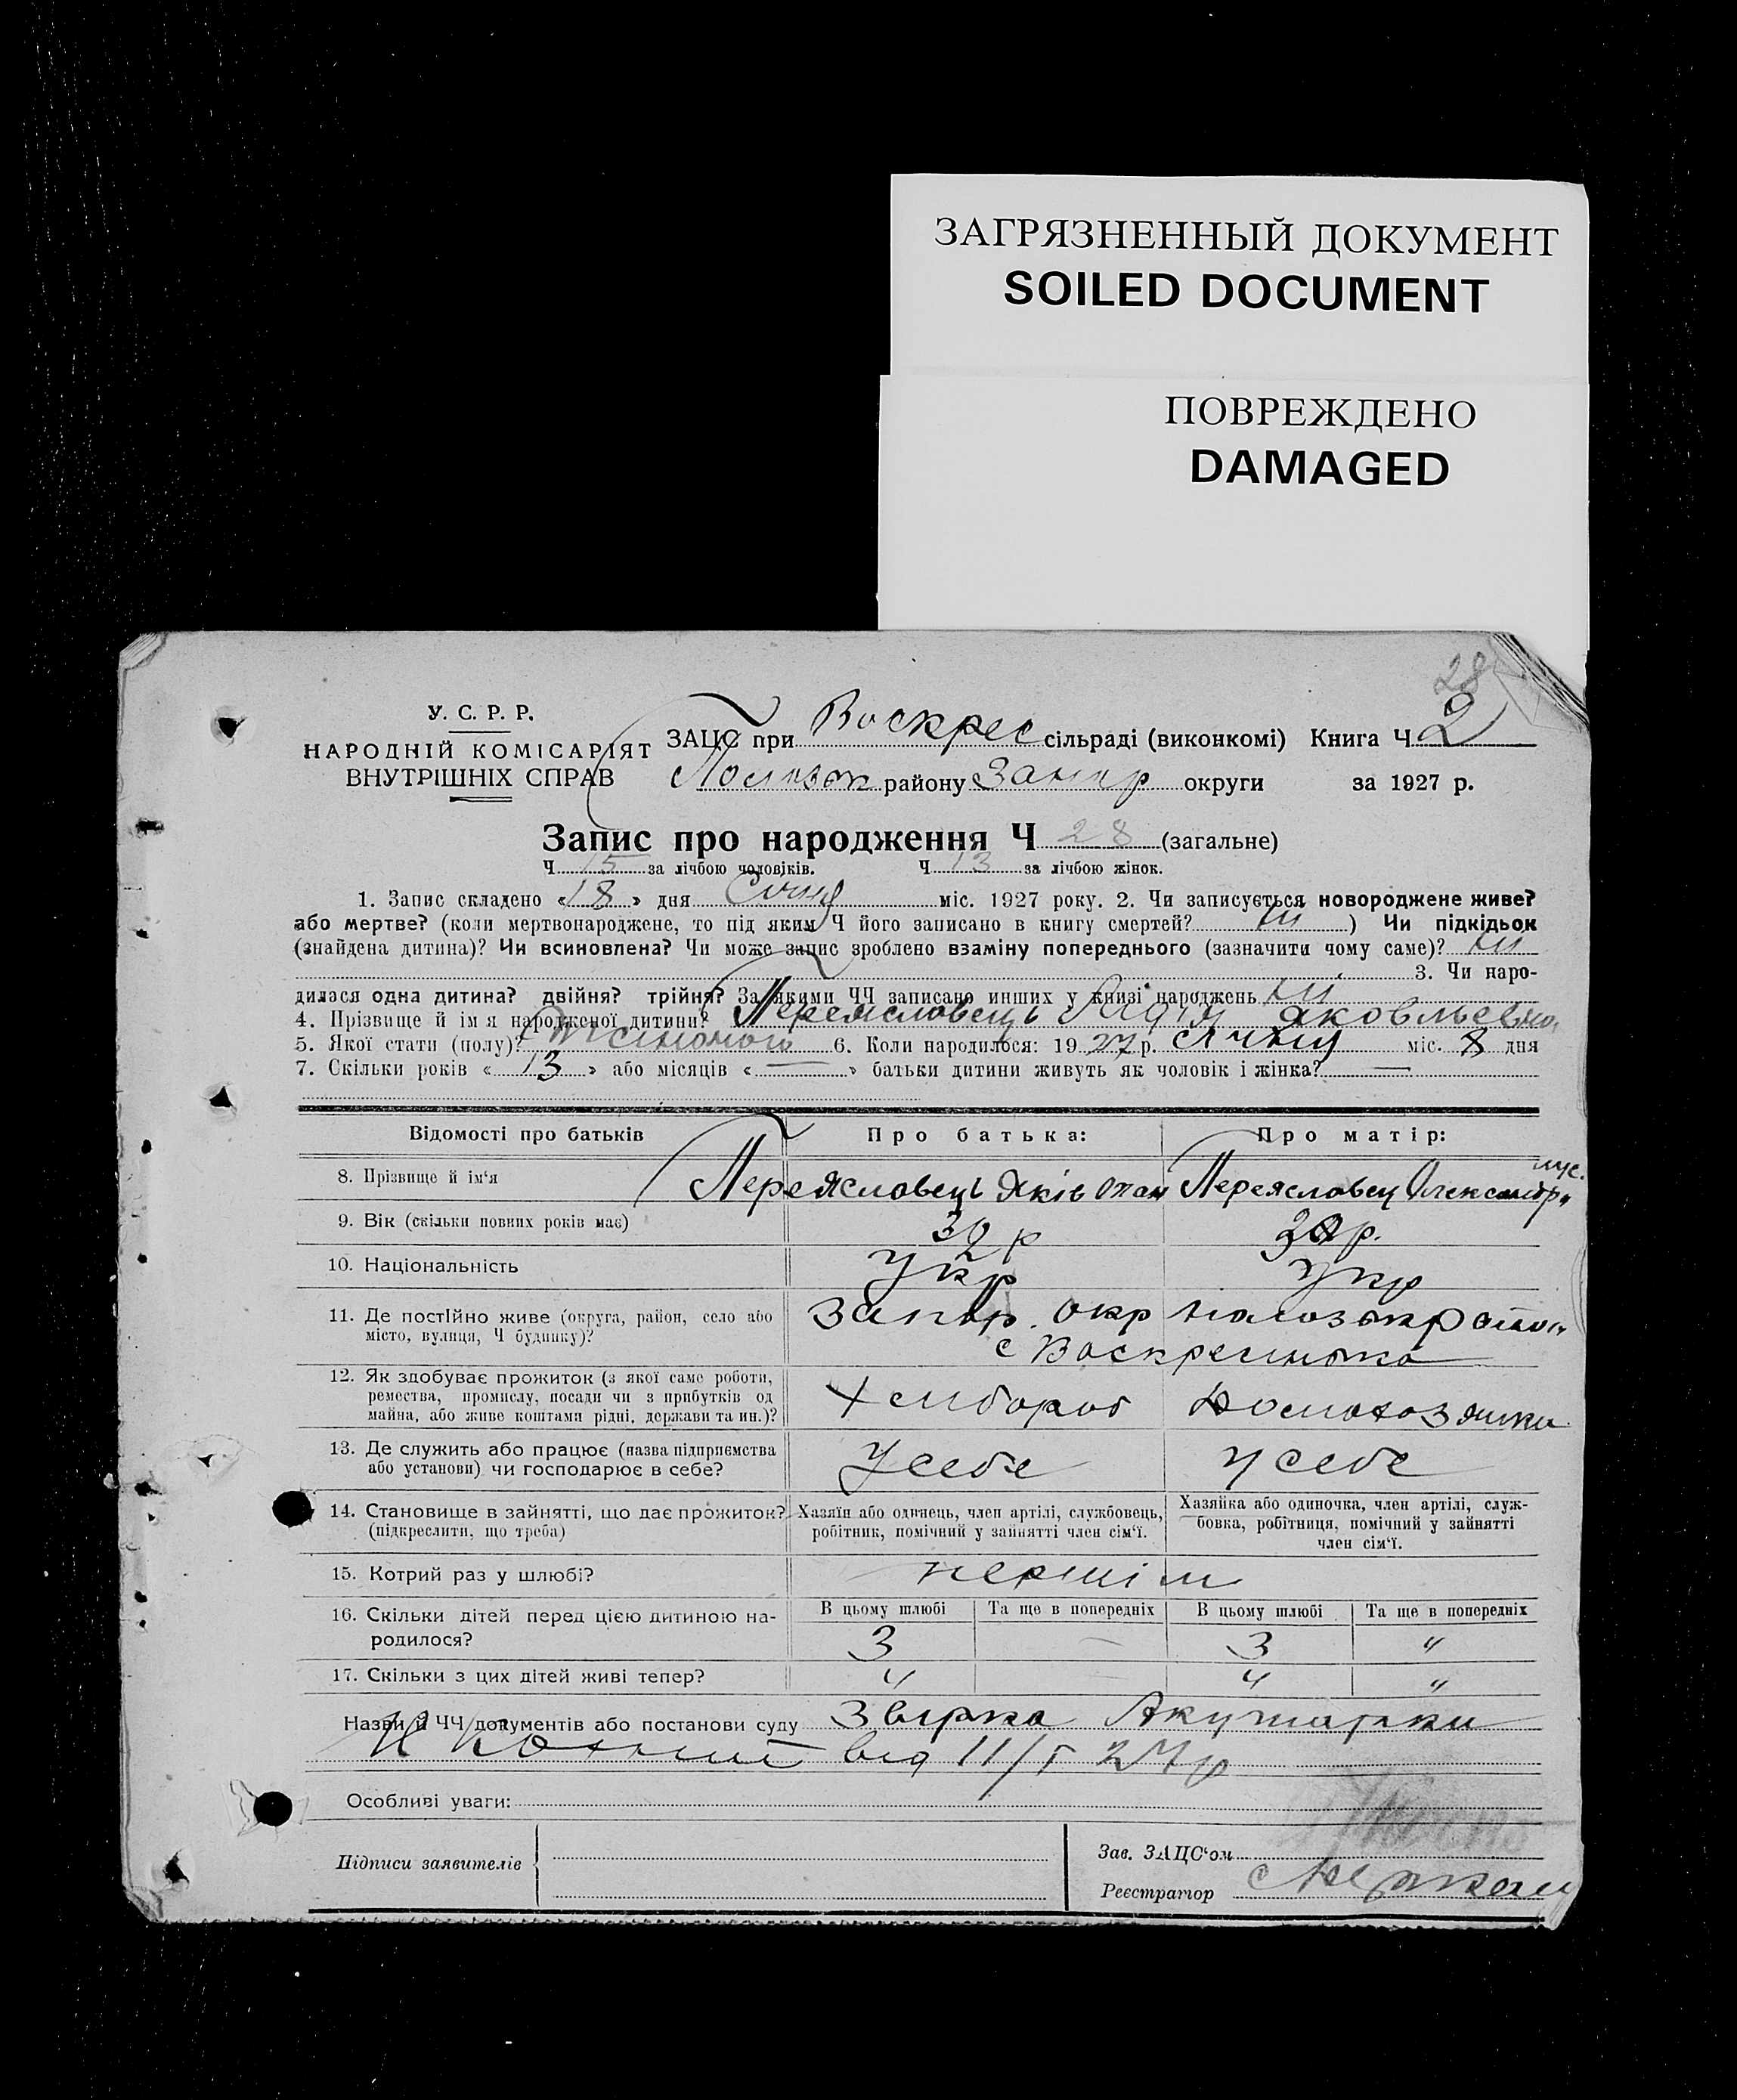 ЗАГРЯЗНЕННЫЙ ДОКУМЕНТ
SOILED DOCUMENT
ПОВРЕЖДЕНО
DAMAGED
28
У. С. Р. Р.
НАРОДНІЙ КОМІСАРІЯТ
ВНУТРІШНІХ СПРАВ
ЗАЦС при Воскрес сільраді (виконкомі) Книга Ч 2
району Запор округи за 1927 р.
Запис про народження Ч 28 (загальне)
Ч 15 за лічбою чоловіків. Ч 13 за лічбою жінок.
1. Запис складено « 18 » дня Січня міс. 1927 року. 2. Чи записується новороджене живе?
або мертве? (коли мертвонароджене, то під яким Ч його записано в книгу смертей? ні ) Чи підкідьок
(знайдена дитина)? Чи всиновлена? Чи може запис зроблено взаміну попереднього (зазначити чому саме)? ні
3. Чи наро-
дилася одна дитина? двійня? трійня? За якими ЧЧ записано инших у книзі народжень ні
4. Прізвище й імя народженої дитини? Переясловець Надія Яковльевна
5. Якої стати (полу)? жіночого 6. Коли народилося: 1927 р. січня міс. 8 дня
7. Скільки років « 13 » або місяців « — » батьки дитини живуть як чоловік і жінка? —
Відомості про батьків Про батька: Про матір:
8. Прізвище й ім‘я Переясловець Яків Опан Переясловец Олександр
9. Вік (скільки повних років має) 32 р р.
10. Національність Укр Укр
11. Де постійно живе (округа, район, село або Запор. окр
місто, вулиця, Ч будинку)? с Воскресинька
12. Як здобуває прожиток (з якої саме роботи,
ремества, промислу, посади чи з прибутків од
майна, або живе коштами рідні, держави та ин.)? Хлібороб Домохозяйка
13. Де служить або працює (назва підприємства
або установи) чи господарює в себе? У себе у себе
14. Становище в зайнятті, що дає прожиток? Хазяїн або одинець, член артілі, службовець, Хазяйка або одиночка, член артілі, служ-
(підкреслити, що треба) робітник, помічний у зайнятті член сім‘ї. бовка, робітниця, помічний у зайнятті
член сім‘ї.
15. Котрий раз у шлюбі? першім
16. Скільки дітей перед цією дитиною на- В цьому шлюбі Та ще в попередніх В цьому шлюбі Та ще в попередніх
родилося? 3 — 3 "
17. Скільки з цих дітей живі тепер? " — " "
Назви й ЧЧ документів або постанови суду Акушерки
від 11/I 27 р
Особливі уваги:
Підписи заявителів
Зав. ЗАЦС‘ом
Реєстратор